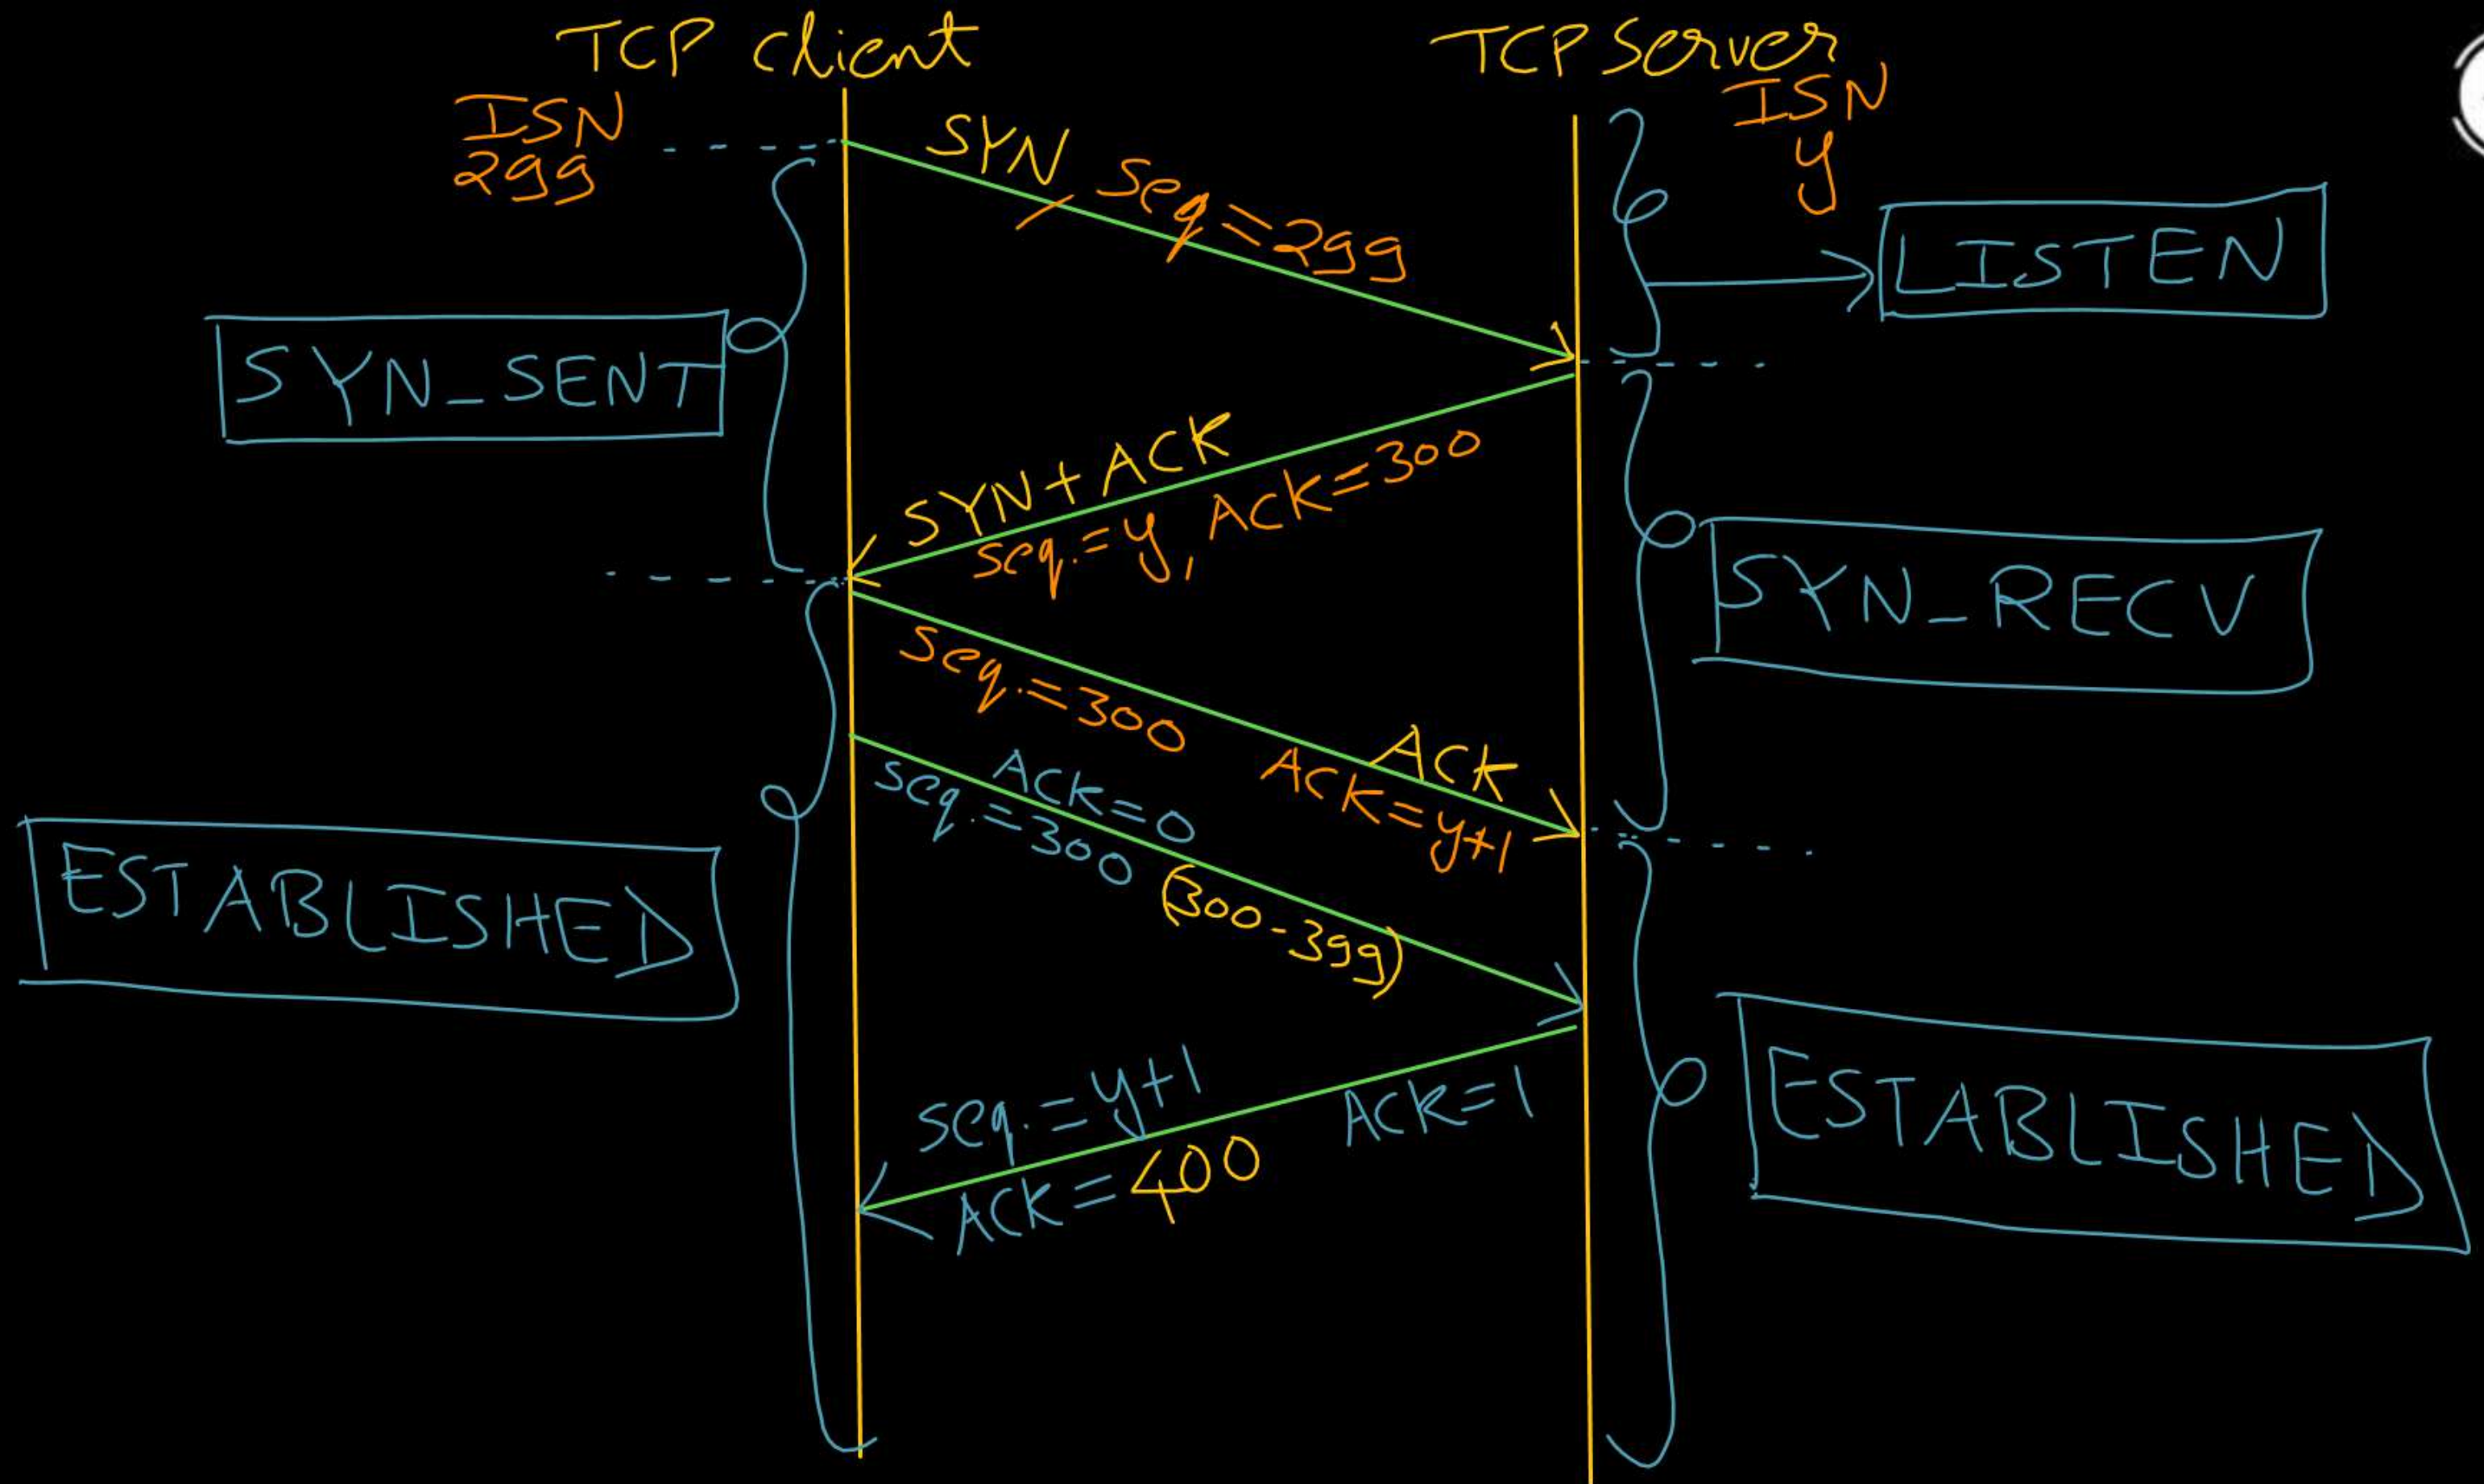 TCP Client
TCP Server
ISN
299
ISN
y
SYN
Seq=299
LISTEN
SYN_SENT
SYN+ACK
seq.=y, ACK=300
SYN_RECV
Seq.=300
ACK
ACK=y+1
ACK=0
seq.=300
(300-399)
ESTABLISHED
seq.=y+1
ACK=1
ACK=400
ESTABLISHED